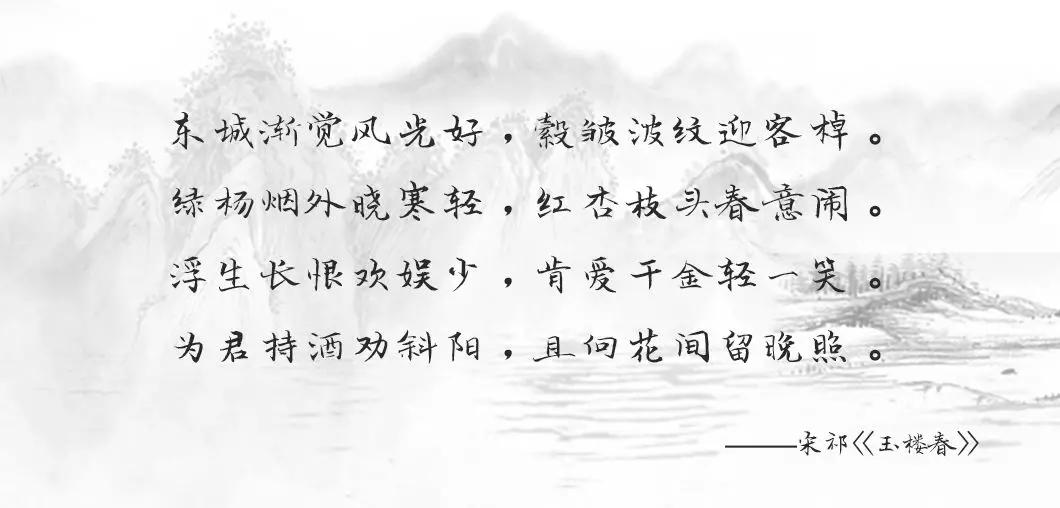 东城渐觉风光好，縠皱波纹迎客棹。
绿杨烟外晓寒轻，红杏枝头春意闹。
浮生长恨欢娱少，肯爱千金轻一笑。
为君持酒劝斜阳，且向花间留晚照。
——宋祁《玉楼春》